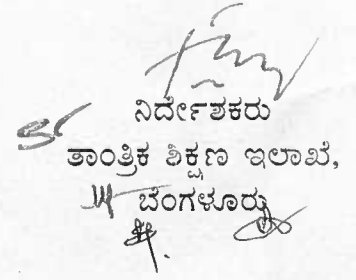 ನಿರ್ದೇಶಕರು
ತಾಂತ್ರಿಕ ಶಿಕ್ಷಣ ಇಲಾಖೆ,
ಬೆಂಗಳೂರು